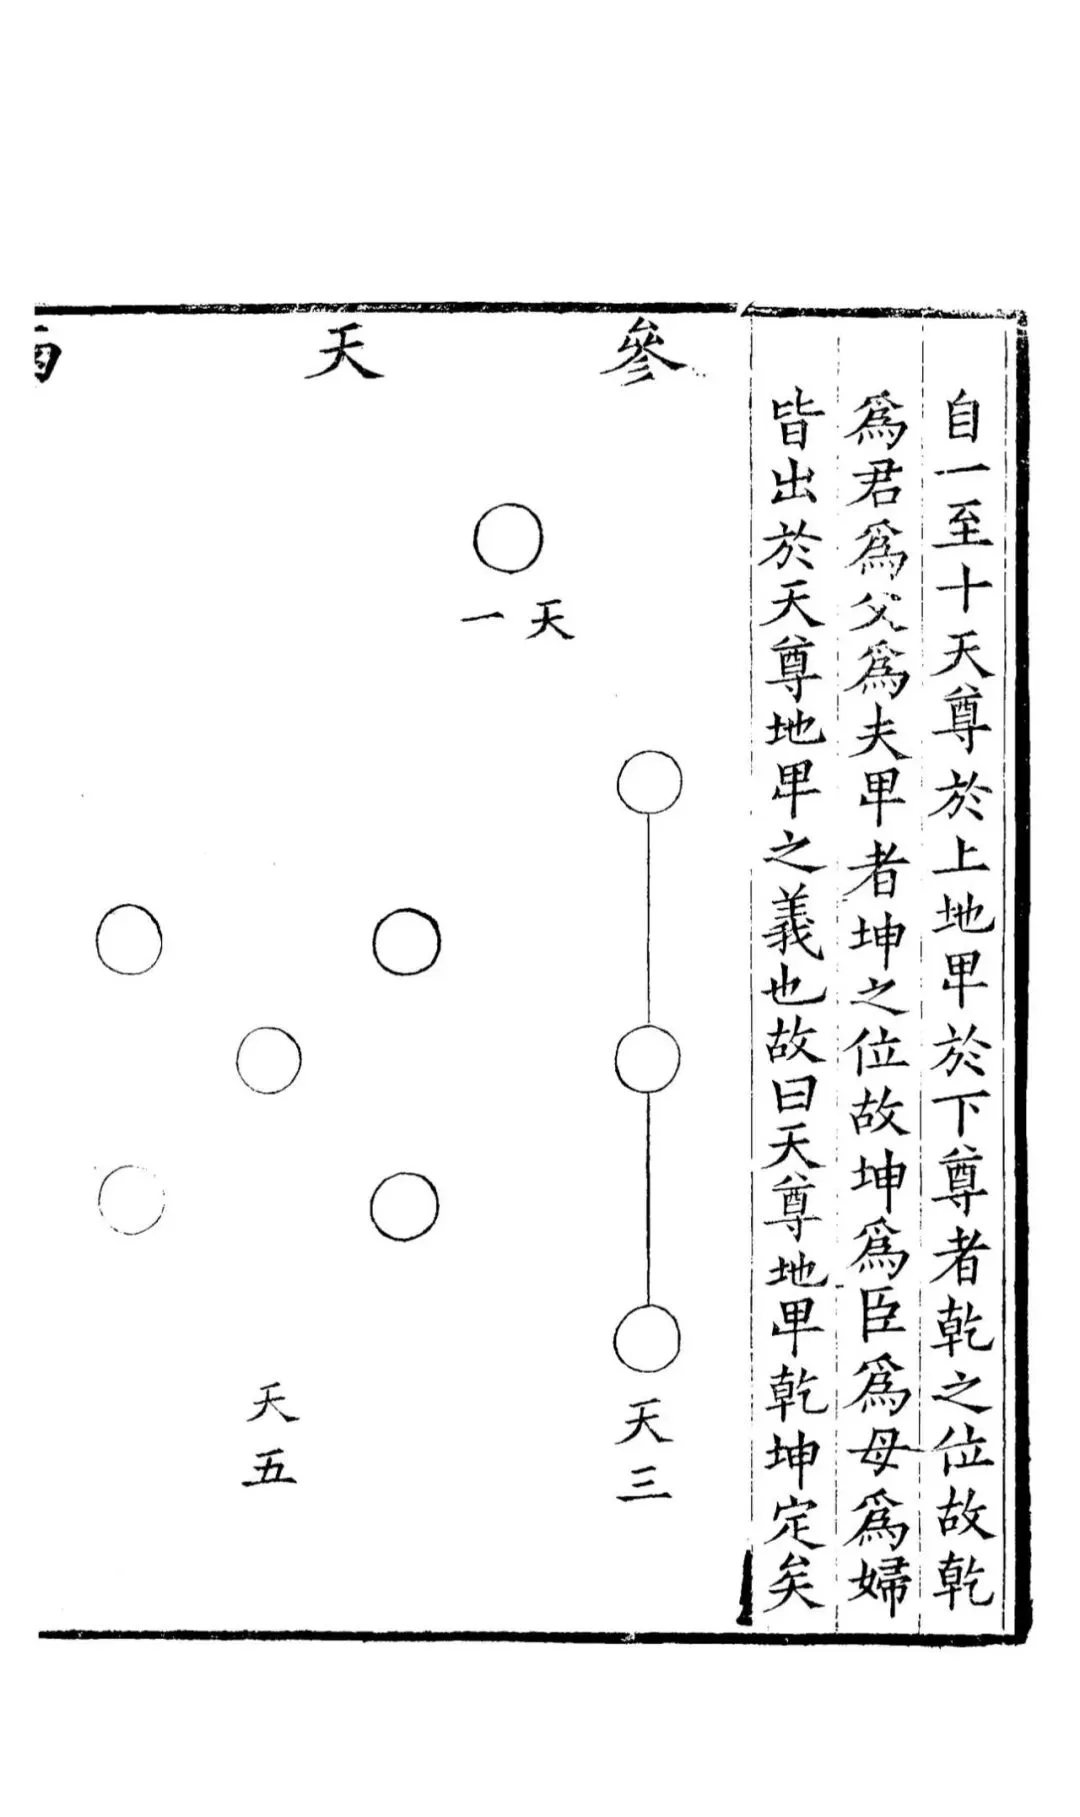 自一至十天尊於上地卑於下尊者乾之位故乾
爲君爲父爲夫卑者坤之位故坤爲臣爲母爲婦
皆出於天尊地卑之義也故曰天尊地卑乾坤定矣
參天
天一
天三
天五